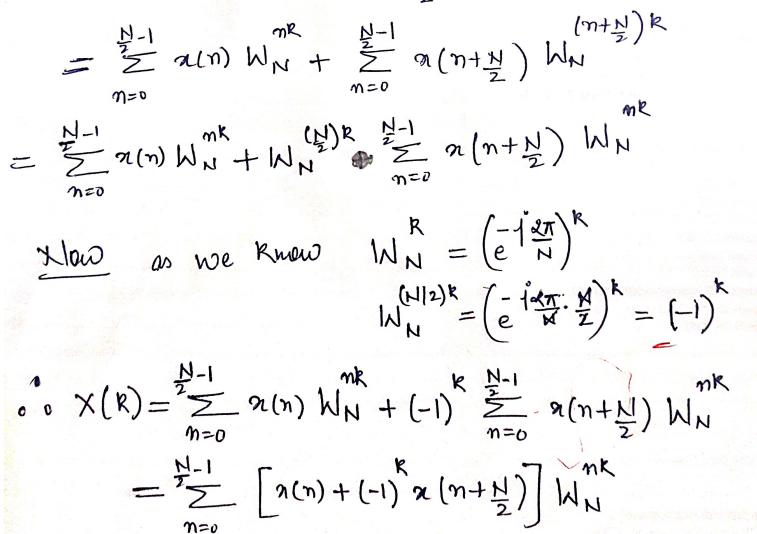 = \sum_{n=0}^{\frac{N}{2}-1} x(n) W_N^{nk} + \sum_{n=0}^{\frac{N}{2}-1} x(n+\frac{N}{2}) W_N^{(n+\frac{N}{2})k}
= \sum_{n=0}^{\frac{N}{2}-1} x(n) W_N^{nk} + W_N^{(\frac{N}{2})k} \sum_{n=0}^{\frac{N}{2}-1} x(n+\frac{N}{2}) W_N^{nk}
Now as we know W_N^k = (e^{-j\frac{2\pi}{N}})^k
W_N^{(N/2)k} = (e^{-j\frac{2\pi}{N} \cdot \frac{N}{2}})^k = (-1)^k
∴ X(k) = \sum_{n=0}^{\frac{N}{2}-1} x(n) W_N^{nk} + (-1)^k \sum_{n=0}^{\frac{N}{2}-1} x(n+\frac{N}{2}) W_N^{nk}
= \sum_{n=0}^{\frac{N}{2}-1} [x(n) + (-1)^k x(n+\frac{N}{2})] W_N^{nk}